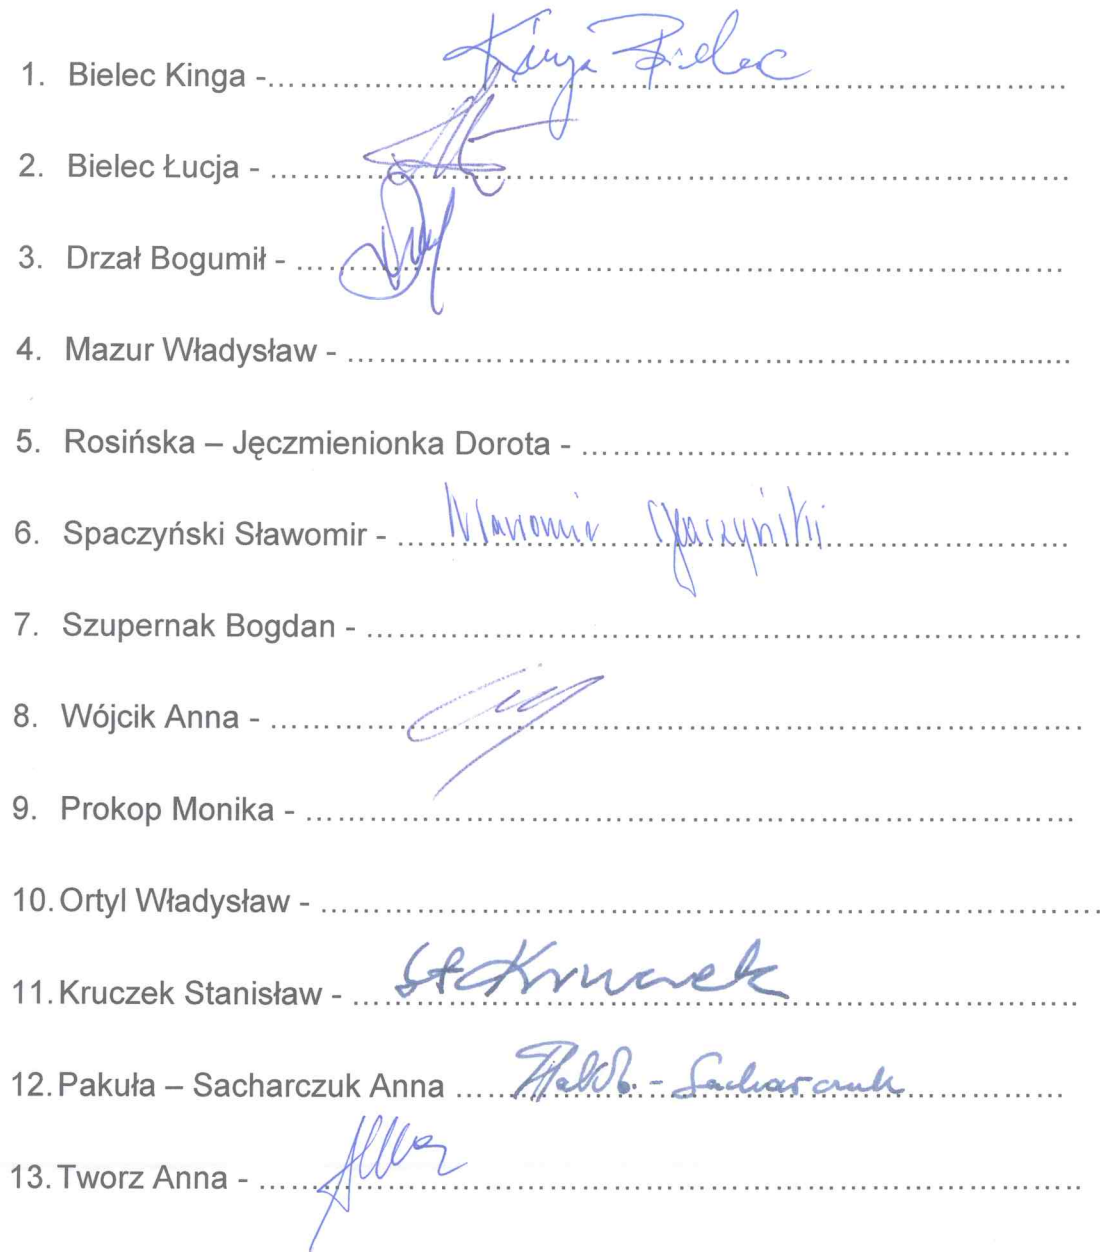 1. Bielec Kinga -.......... Kinga Bielec
2. Bielec Łucja - ..........
3. Drzał Bogumił - ..........
4. Mazur Władysław - ..........
5. Rosińska – Jęczmienionka Dorota - ..........
6. Spaczyński Sławomir - .......... Sławomir Spaczyński
7. Szupernak Bogdan - ..........
8. Wójcik Anna - ..........
9. Prokop Monika - ..........
10. Ortyl Władysław - ..........
11. Kruczek Stanisław - .......... St Kruczek
12. Pakuła – Sacharczuk Anna .......... - Sacharczuk
13. Tworz Anna - ..........